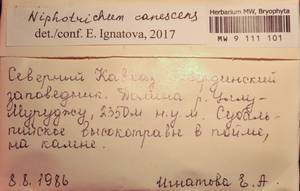 Niphotrichum canescens
det./conf. E. Ignatova, 2017
Herbarium MW, Bryophyta
MW 9 111 101
Северный Кавказ Тебердинский
заповедник. Долина р. Уллу-
Муруджу, 2350 м н.у.м. Субаль-
пийское высокотравье в пойме,
на камне.
8.8.1986 Игнатова Е.А.